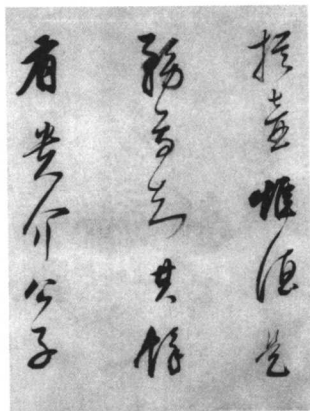 提壺唯酒是
務焉知其餘
有貴介公子